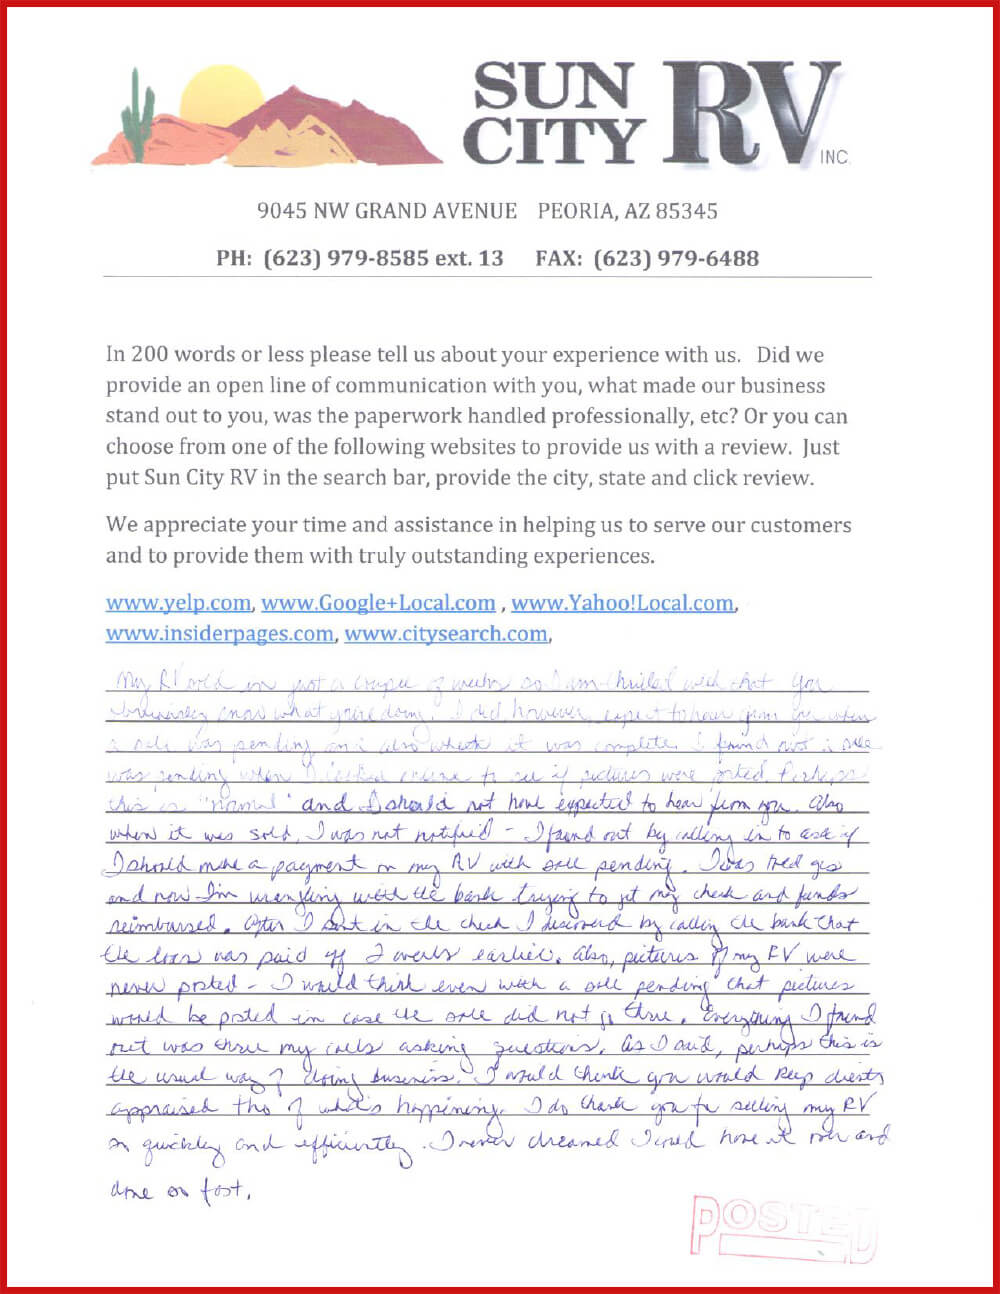 SUN
CITY RV INC.
9045 NW GRAND AVENUE PEORIA, AZ 85345
PH: (623) 979-8585 ext. 13 FAX: (623) 979-6488
In 200 words or less please tell us about your experience with us. Did we
provide an open line of communication with you, what made our business
stand out to you, was the paperwork handled professionally, etc? Or you can
choose from one of the following websites to provide us with a review. Just
put Sun City RV in the search bar, provide the city, state and click review.
We appreciate your time and assistance in helping us to serve our customers
and to provide them with truly outstanding experiences.
www.yelp.com, www.Google+Local.com , www.Yahoo!Local.com,
www.insiderpages.com, www.citysearch.com,
My RV sold in just a couple of weeks so I am thrilled with that. You
know what you're doing. I did however, expect to hear from you when
a sale was pending and also when it was complete. I found out a sale
was pending when I looked online to see if pictures were posted. Perhaps
this is "normal" and I should not have expected to hear from you. Also
when it was sold, I was not notified - I found out by calling in to ask if
I should make a payment on my RV with sale pending. I was told yes
and now I'm wrangling with the bank trying to get my check and funds
reimbursed. After I sent in the check I discovered by calling the bank that
the loan was paid off 2 weeks earlier. Also, pictures of my RV were
never posted - I would think even with a sale pending that pictures
would be posted in case the sale did not go thru. Everything I found
out was thru my calls asking questions. As I said, perhaps this is
the usual way of doing business. I would think you would keep clients
appraised tho of what's happening. I do thank you for selling my RV
so quickly and efficiently. I never dreamed I could have it over and
done so fast.
POSTED